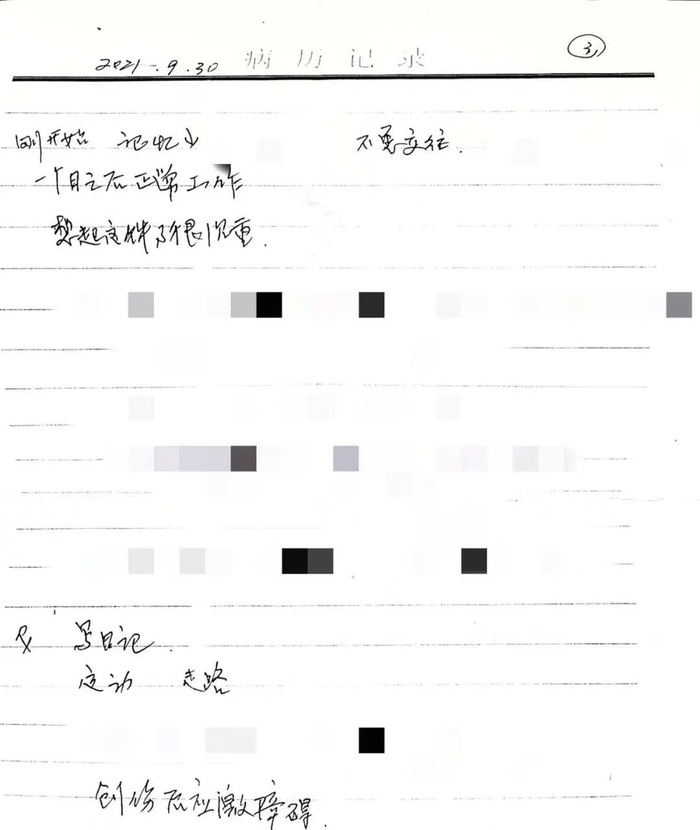 2021.9.30 病历记录 3
刚开始 记忆少 不要交往.
一个月之后正常工作
想起这件事很沉重.
写日记.
运动 走路
创伤后应激障碍.